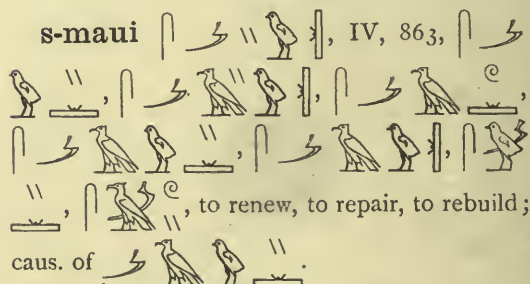 s-maui 𓋴𓌳𓏭𓅱𓏜, IV, 863, 𓋴𓌳
𓅱𓏭𓏛, 𓋴𓌳𓄿𓏭𓅱𓏜, 𓋴𓌳𓄿𓏲𓏛,
𓋴𓌳𓄿𓅱𓏭𓏛, 𓋴𓌳𓄿𓅱𓏜, 𓋴
𓏭𓏛, 𓋴𓅂𓏲𓏭, to renew, to repair, to rebuild;
caus. of 𓌳𓄿𓅱𓏭𓏛.